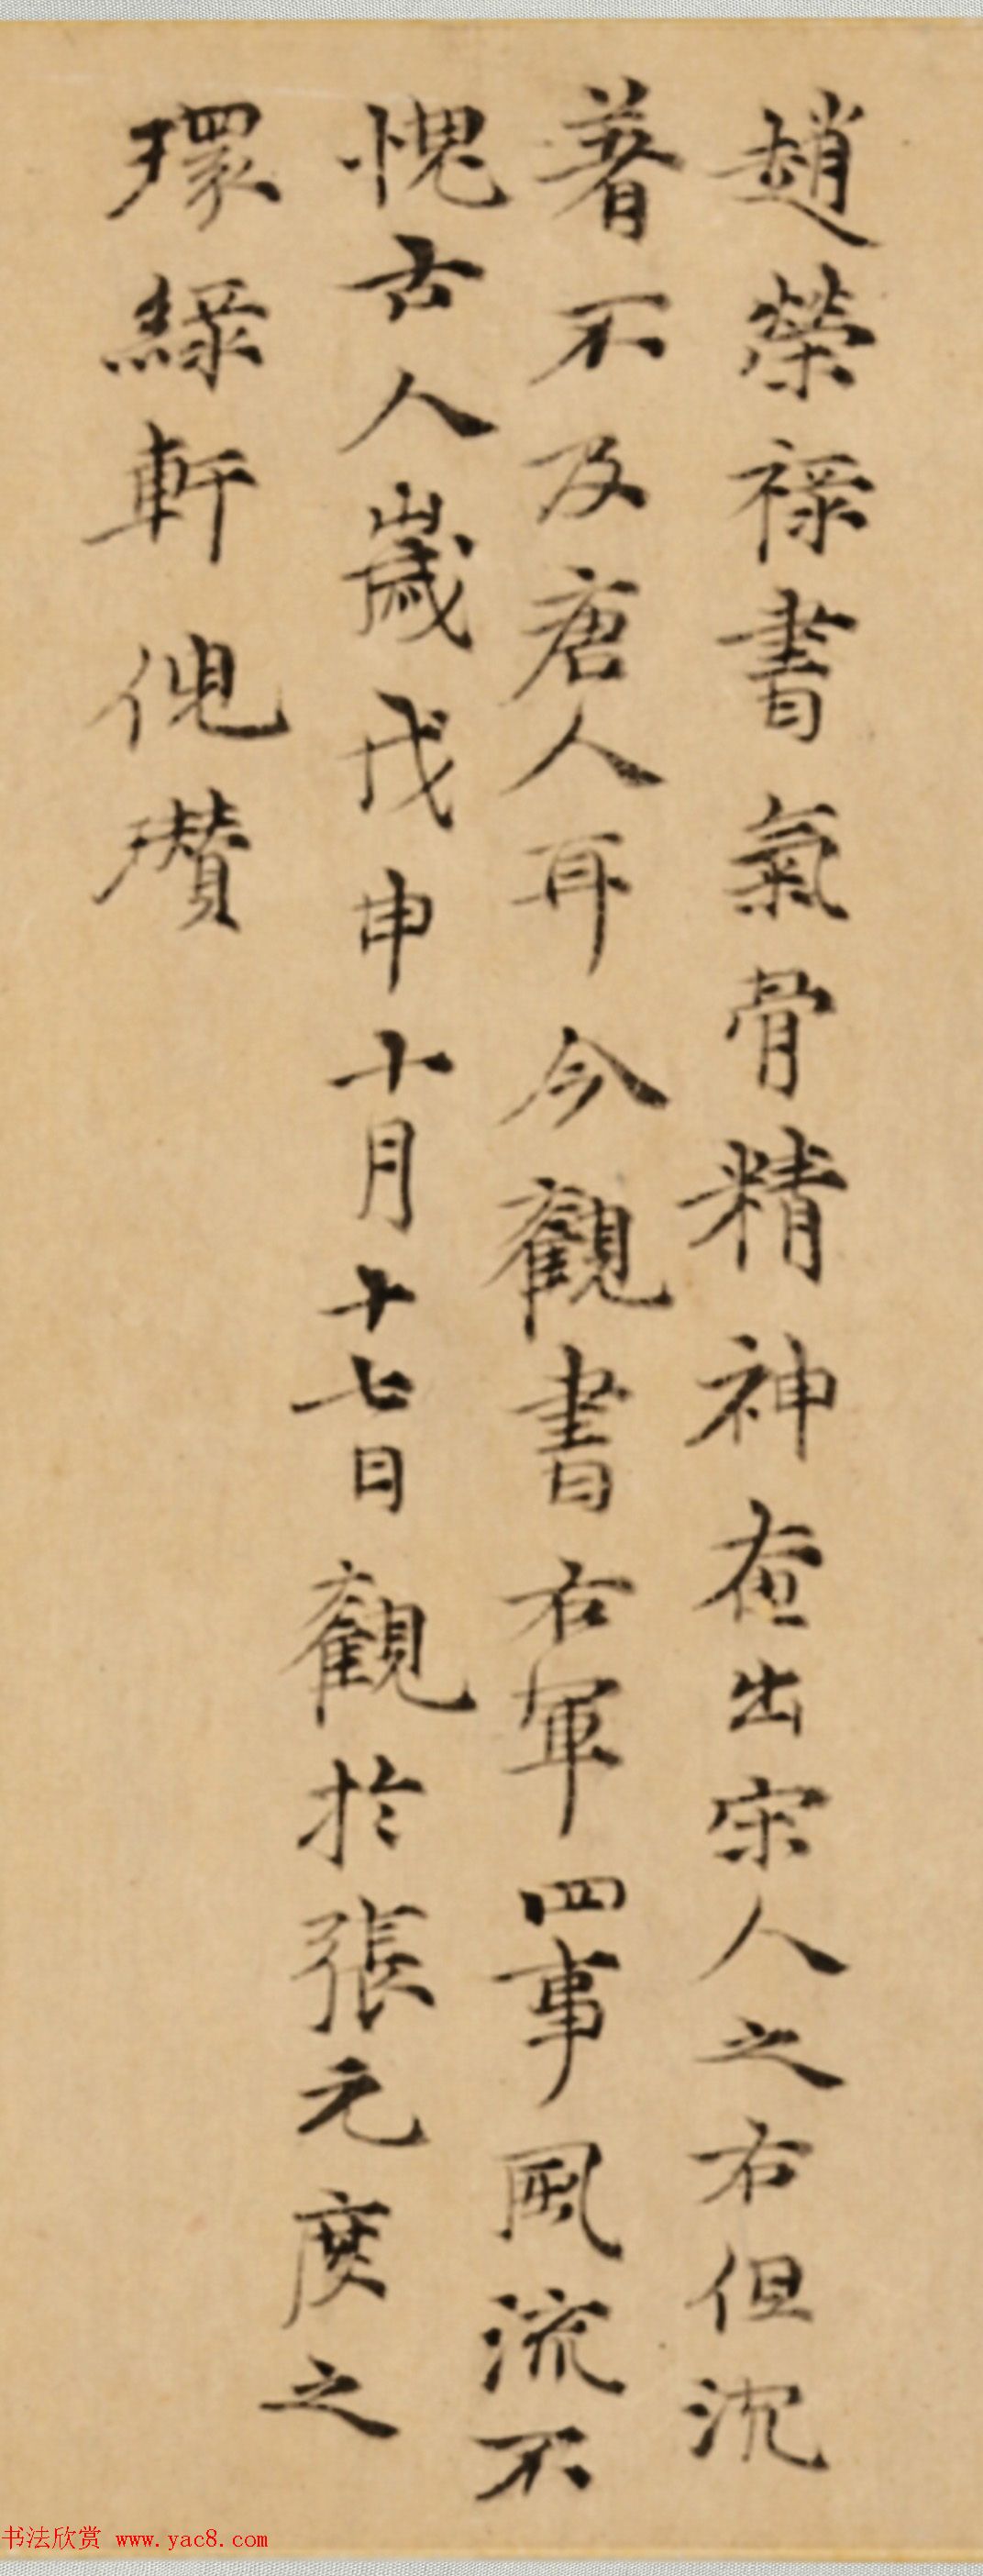 趙榮祿書氣骨精神壺出宋人之右但沈
著不及唐人耳今觀書右軍四事風流不
愧古人歲戊申十月十七日觀於張元度之
環綠軒倪瓚
书法欣赏 www.yac8.com